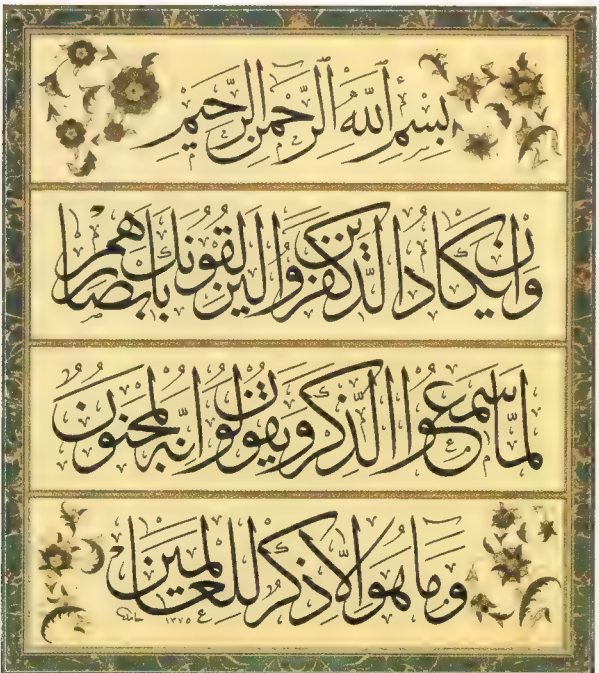 بِسْمِ اللهِ الرَّحْمٰنِ الرَّحِيمِ
وَاِنْ يَكَادُ الَّذِينَ كَفَرُوا لَيُزْلِقُونَكَ بِاَبْصَارِهِمْ
لَمَّا سَمِعُوا الذِّكْرَ وَيَقُولُونَ اِنَّهُ لَمَجْنُونٌ
وَمَا هُوَ اِلَّا ذِكْرٌ لِلْعَالَمِينَ
حامد ١٣٧٥